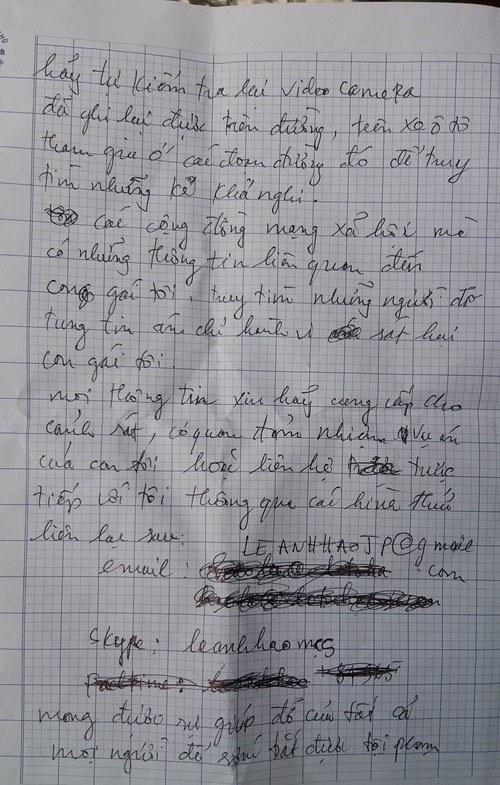 hãy tự kiểm tra lại video camera
đã ghi lại được trên đường, trên xe ô tô
tham gia ở các đoạn đường đó để truy
tìm những kẻ khả nghi.
các cộng đồng mạng xã hội mà
có những thông tin liên quan đến
con gái tôi, truy tìm những người đó
tung tin ám chỉ hành vi sát hại
con gái tôi.
mọi thông tin xin hãy cung cấp cho
cảnh sát, cơ quan đảm nhiệm vụ án
của con tôi hoặc liên hệ trực
tiếp với tôi thông qua các hình thức
liên lạc sau:
LEANHHAOJP@gmail
email : .com
Skype: leanhhaomcs
mong được sự giúp đỡ của tất cả
mọi người để sớm bắt được tội phạm